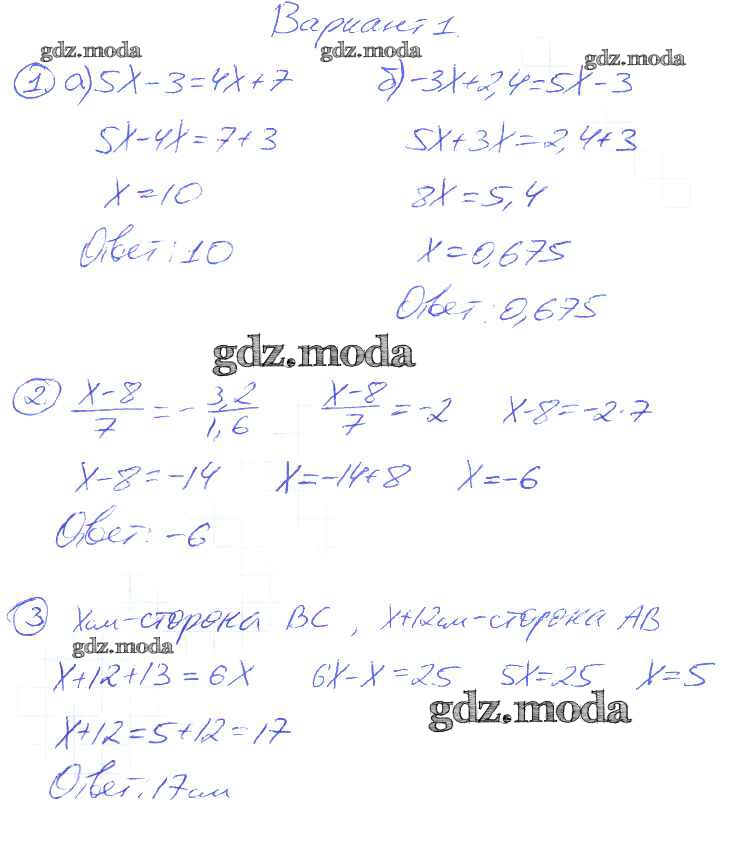 Вариант 1.
gdz.moda gdz.moda gdz.moda
1. а) 5x-3=4x+7 б) -3x+2,4=5x-3
5x-4x=7+3 5x+3x=2,4+3
x=10 8x=5,4
Ответ: 10 x=0,675
Ответ: 0,675
gdz.moda
2. \frac{x-8}{7}=-\frac{3,2}{1,6} \frac{x-8}{7}=-2 x-8=-2·7
x-8=-14 x=-14+8 x=-6
Ответ: -6
3 xсм-сторона BC, x+12см-сторона AB
gdz.moda
x+12+13=6x 6x-x=25 5x=25 x=5
gdz.moda
x+12=5+12=17
Ответ: 17см